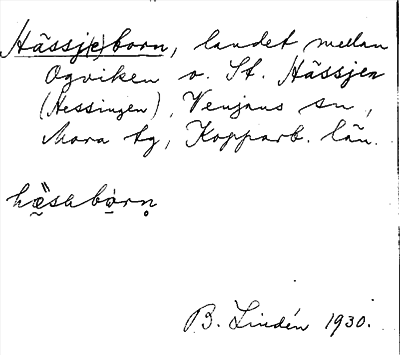 Hässj(e)born, landet mellan
Ogviken o. St. Hässjen
(Hessingen), Venjans sn,
Mora tg, Kopparb. län.
B. Lindén 1930.